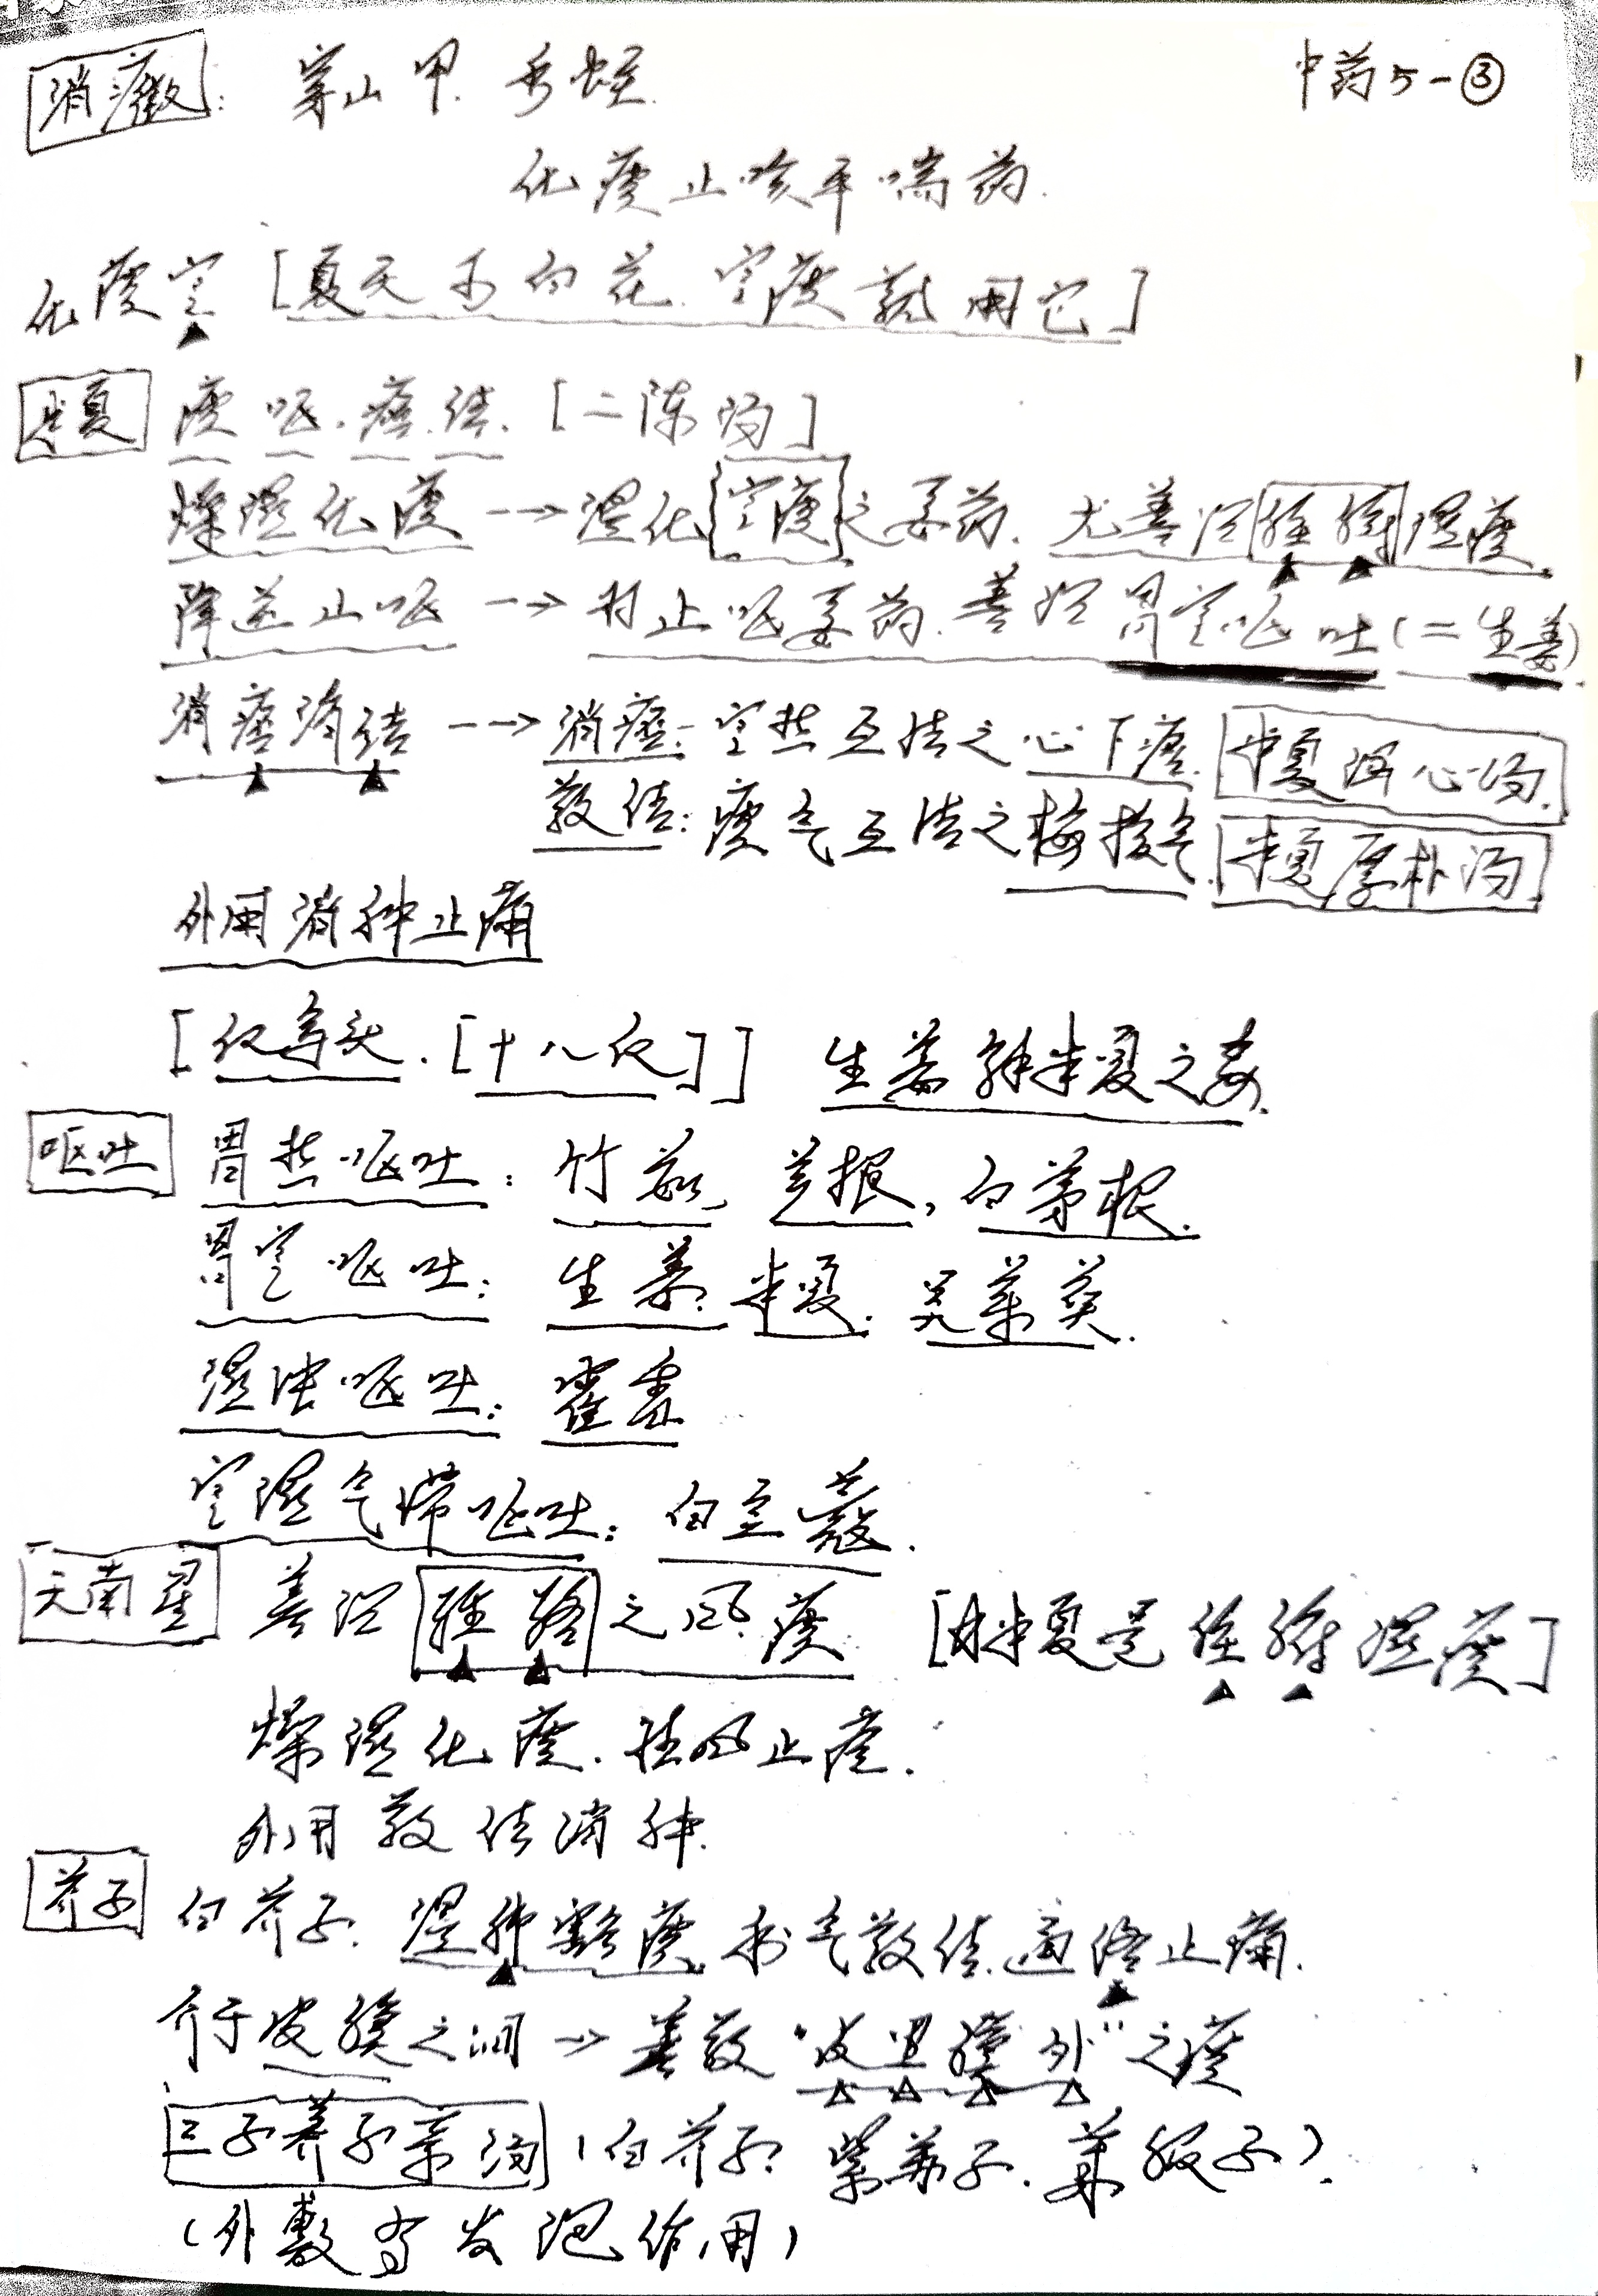 中药5-③
消癥: 穿山甲. 水蛭.
化痰止咳平喘药.
化痰寒 [夏天子白花. 寒痰就用它]
半夏 痰呕.痞.结. [二陈汤]
燥湿化痰 → 湿化{寒痰}之要药. 尤善治脏腑湿痰.
降逆止呕 → 为止呕要药. 善治胃寒呕吐(=生姜).
消痞消结 → 消痞: 寒热互结之心下痞. 半夏泻心汤.
散结: 痰气互结之梅核气. 半夏厚朴汤.
外用消肿止痛
[反乌头. [十八反]] 生姜解半夏之毒.
呕吐 胃热呕吐: 竹茹、芦根, 白茅根.
胃寒呕吐: 生姜. 半夏. 吴茱萸.
湿浊呕吐: 藿香
寒湿气滞呕吐: 白豆蔻.
天南星 善治经络之风痰 [半夏是脏腑湿痰]
燥湿化痰. 祛风止痉.
外用散结消肿.
芥子 白芥子. 温肺豁痰. 利气散结. 通络止痛.
介于皮膜之间 → 善散“皮里膜外”之痰
三子养亲汤 (白芥子. 紫苏子. 莱菔子).
(外敷有发泡作用)